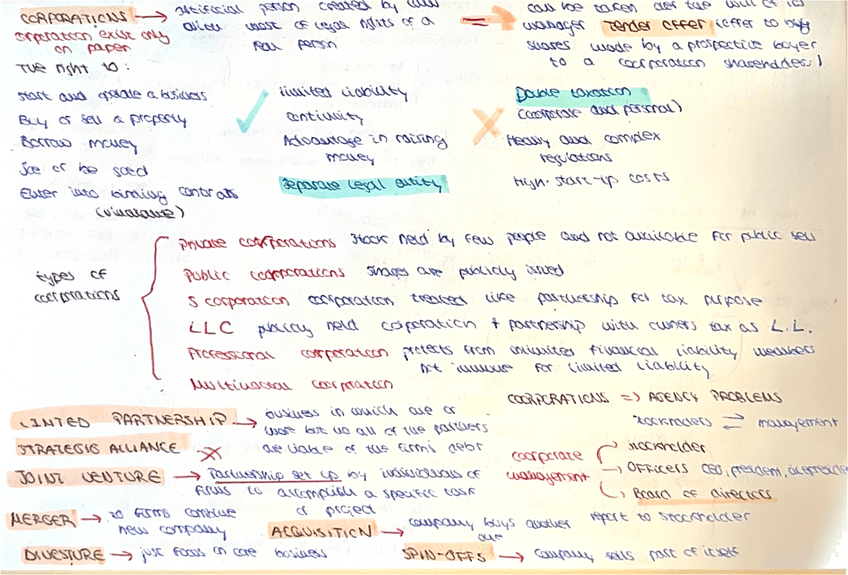 CORPORATIONS → artificial person created by law
allow most of legal rights of a
real person
corporation exist only
on paper
⇒ can be taken over the will of its
manager Tender offer (offer to buy
shares made by a prospective buyer
to a coorporation shareholders)
The right to:
start and operate a business
Buy or sell a property
Borrow money
Sue or be sued
Enter into binding contrats
✓ limited liability
continuity
Advantage in raising
money
Separate legal entity
✗ Double taxation
(corporate and personal)
Heavy and complex
regulations
High start-up costs
types of
corporations
Private corporations stock held by few people and not available for public sell
Public coorporations shares are publicly issued
S corporation coorporation treated like partnership for tax purpose
LLC publicy held corporation + partnership with owners tax as L.L.
Professional corporation protects from unlimited financial liability members
not immune for limited liability
Multinational corporation
LIMITED PARTNERSHIP → business in which one or
more but no all of the partners
are liable of the firm's debt
STRATEGIC ALLIANCE
JOINT VENTURE → Partnership set up by individuals or
firms to accomplish a specific task
or project
MERGER → to firms combine
new company
ACQUISITION → company buys another
one
DIVESTURE → just focus in core business
SPIN-OFFS → company sells part of itself
COORPORATIONS ⇒ AGENCY PROBLEMS
stockholders ⇄ management
coorporate
management
stockholder
→ Officers CEO, president, vicepreside
Board of directors
report to stockholder